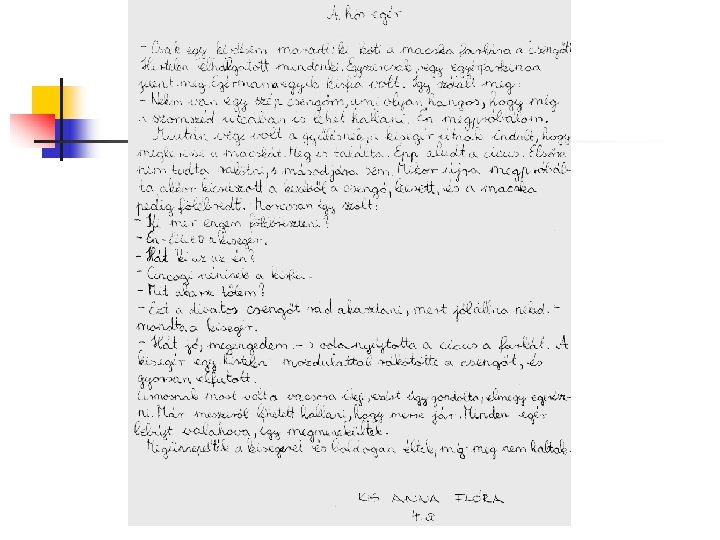 A hős egér
- Csak egy kérdésem maradt: ki köti a macska farkára a csengőt?
Hirtelen elhallgatott mindenki. Egyszercsak, egy egérfarkinca
jelent meg. Egérmama egyik kisfia volt. Így szólalt meg:
- Nekem van egy szép csengőm, ami olyan hangos, hogy még
a szomszéd utcában is lehet hallani. Én megpróbálom.
Miután vége volt a gyűlésnek, a kisegér útnak indult, hogy
megkeresse a macskát. Meg is találta. Épp aludt a cicus. Elsőre
nem tudta rákötni, s másodjára sem. Mikor újra megpróbál-
ta akkor kicsúszott a kezéből a csengő, leesett, és a macska
pedig fölébredt. Morcosan így szólt:
- Ki mer engem fölébreszteni?
- Én - felelt a kisegér.
- Hát ki az az én?
- Cincogi néninek a kisfia.
- Mit akarsz tőlem?
- Ezt a divatos csengőt rád akasztani, mert jól állna neked. -
mondta a kisegér.
- Hát jó, megengedem. - s odanyújtotta a cicus a farkát. A
kisegér egy hirtelen mozdulattal rákötötte a csengőt, és
gyorsan elfutott.
Cirmosnak most volt a vacsora ideje, ezért úgy gondolta, elmegy egerész-
ni. Már messziről lehetett hallani, hogy merre jár. Minden egér
elbújt valahova, így megmenekültek.
Megünnepelték a kisegeret és boldogan éltek, míg meg nem haltak.
KIS ANNA FLÓRA
4. a